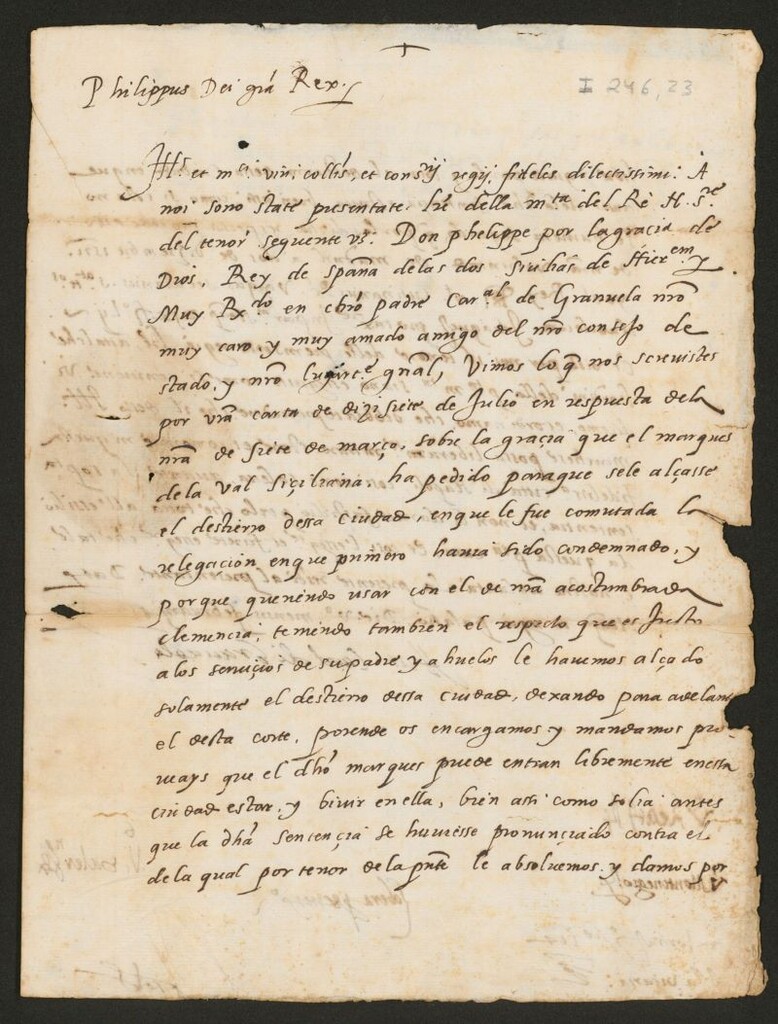 Philippus Dei grã Rex.
I 246, 23
Ill.s et m.ci viri collis, et cons.rij regij fideles dilectissimi: A
noi sono state presentate. lre della m.ta del Rè N. S.re
del tenor sequente vz. Don phelippe por la gracia de
Dios, Rey de spaña de las dos sicilias de Hier.em y
Muy R.do en chrõ padre Car.al de Granuela nrõ
muy caro, y muy amado amigo del nrõ consejo de
stado, y nrõ lugarte gnãl, Vimos lo q̃ nos screuistes
por vrã carta de dizisiete de Julio en respuesta dela
nrã de siete de março, sobre la gracia que el marques
dela Val siciliana, ha pedido paraque sele alçasse
el destierro dessa ciudad, enque le fue comutada la
relegación enque primero hauia sido condemnado, y
porque queriendo usar con el de nrã acostumbrada
clemencia, teniendo tambien el respecto que es justo
alos seruiçios de su padre y ahuelos le hauemos alçado
solamente el destierro dessa ciudad, dexando para adelante
el desta corte, porende os encargamos y mandamos pro-
ueays que el dhõ marques puede entrar libremente enessa
ciudad estar, y biuir enella, bien assi como solia antes
que la dhã sentençia se huuiesse pronunçiado contra el
dela qual por tenor dela pnt̃e le absoluemos. y damos por